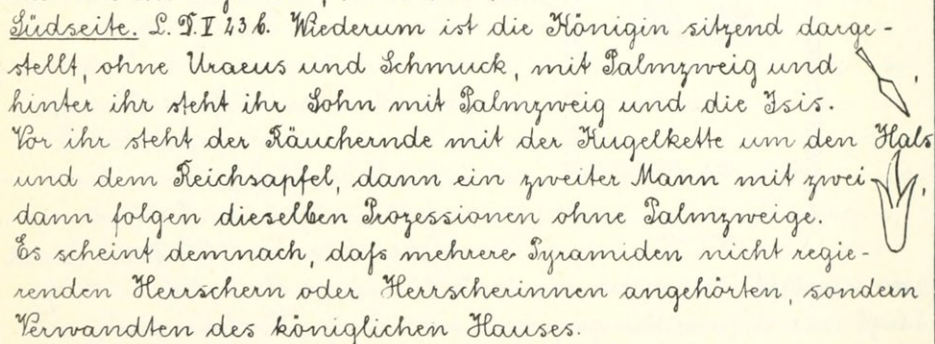 Südseite. L. D. V 23 b. Wiederum ist die Königin sitzend darge-
stellt, ohne Uraeus und Schmuck, mit Palmzweig und
hinter ihr steht ihr Sohn mit Palmzweig und die Isis.
Vor ihr steht der Räuchernde mit der Kugelkette um den Hals
und dem Reichsapfel, dann ein zweiter Mann mit zwei
dann folgen dieselben Prozessionen ohne Palmzweige.
Es scheint demnach, dafs mehrere Pyramiden nicht regie-
renden Herrschern oder Herrscherinnen angehörten, sondern
Verwandten des königlichen Hauses.